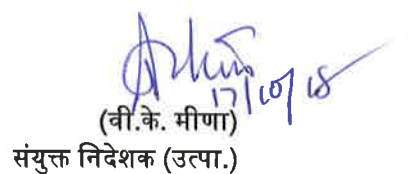 17/10/18
(वी.के. मीणा)
संयुक्त निदेशक (उत्पा.)